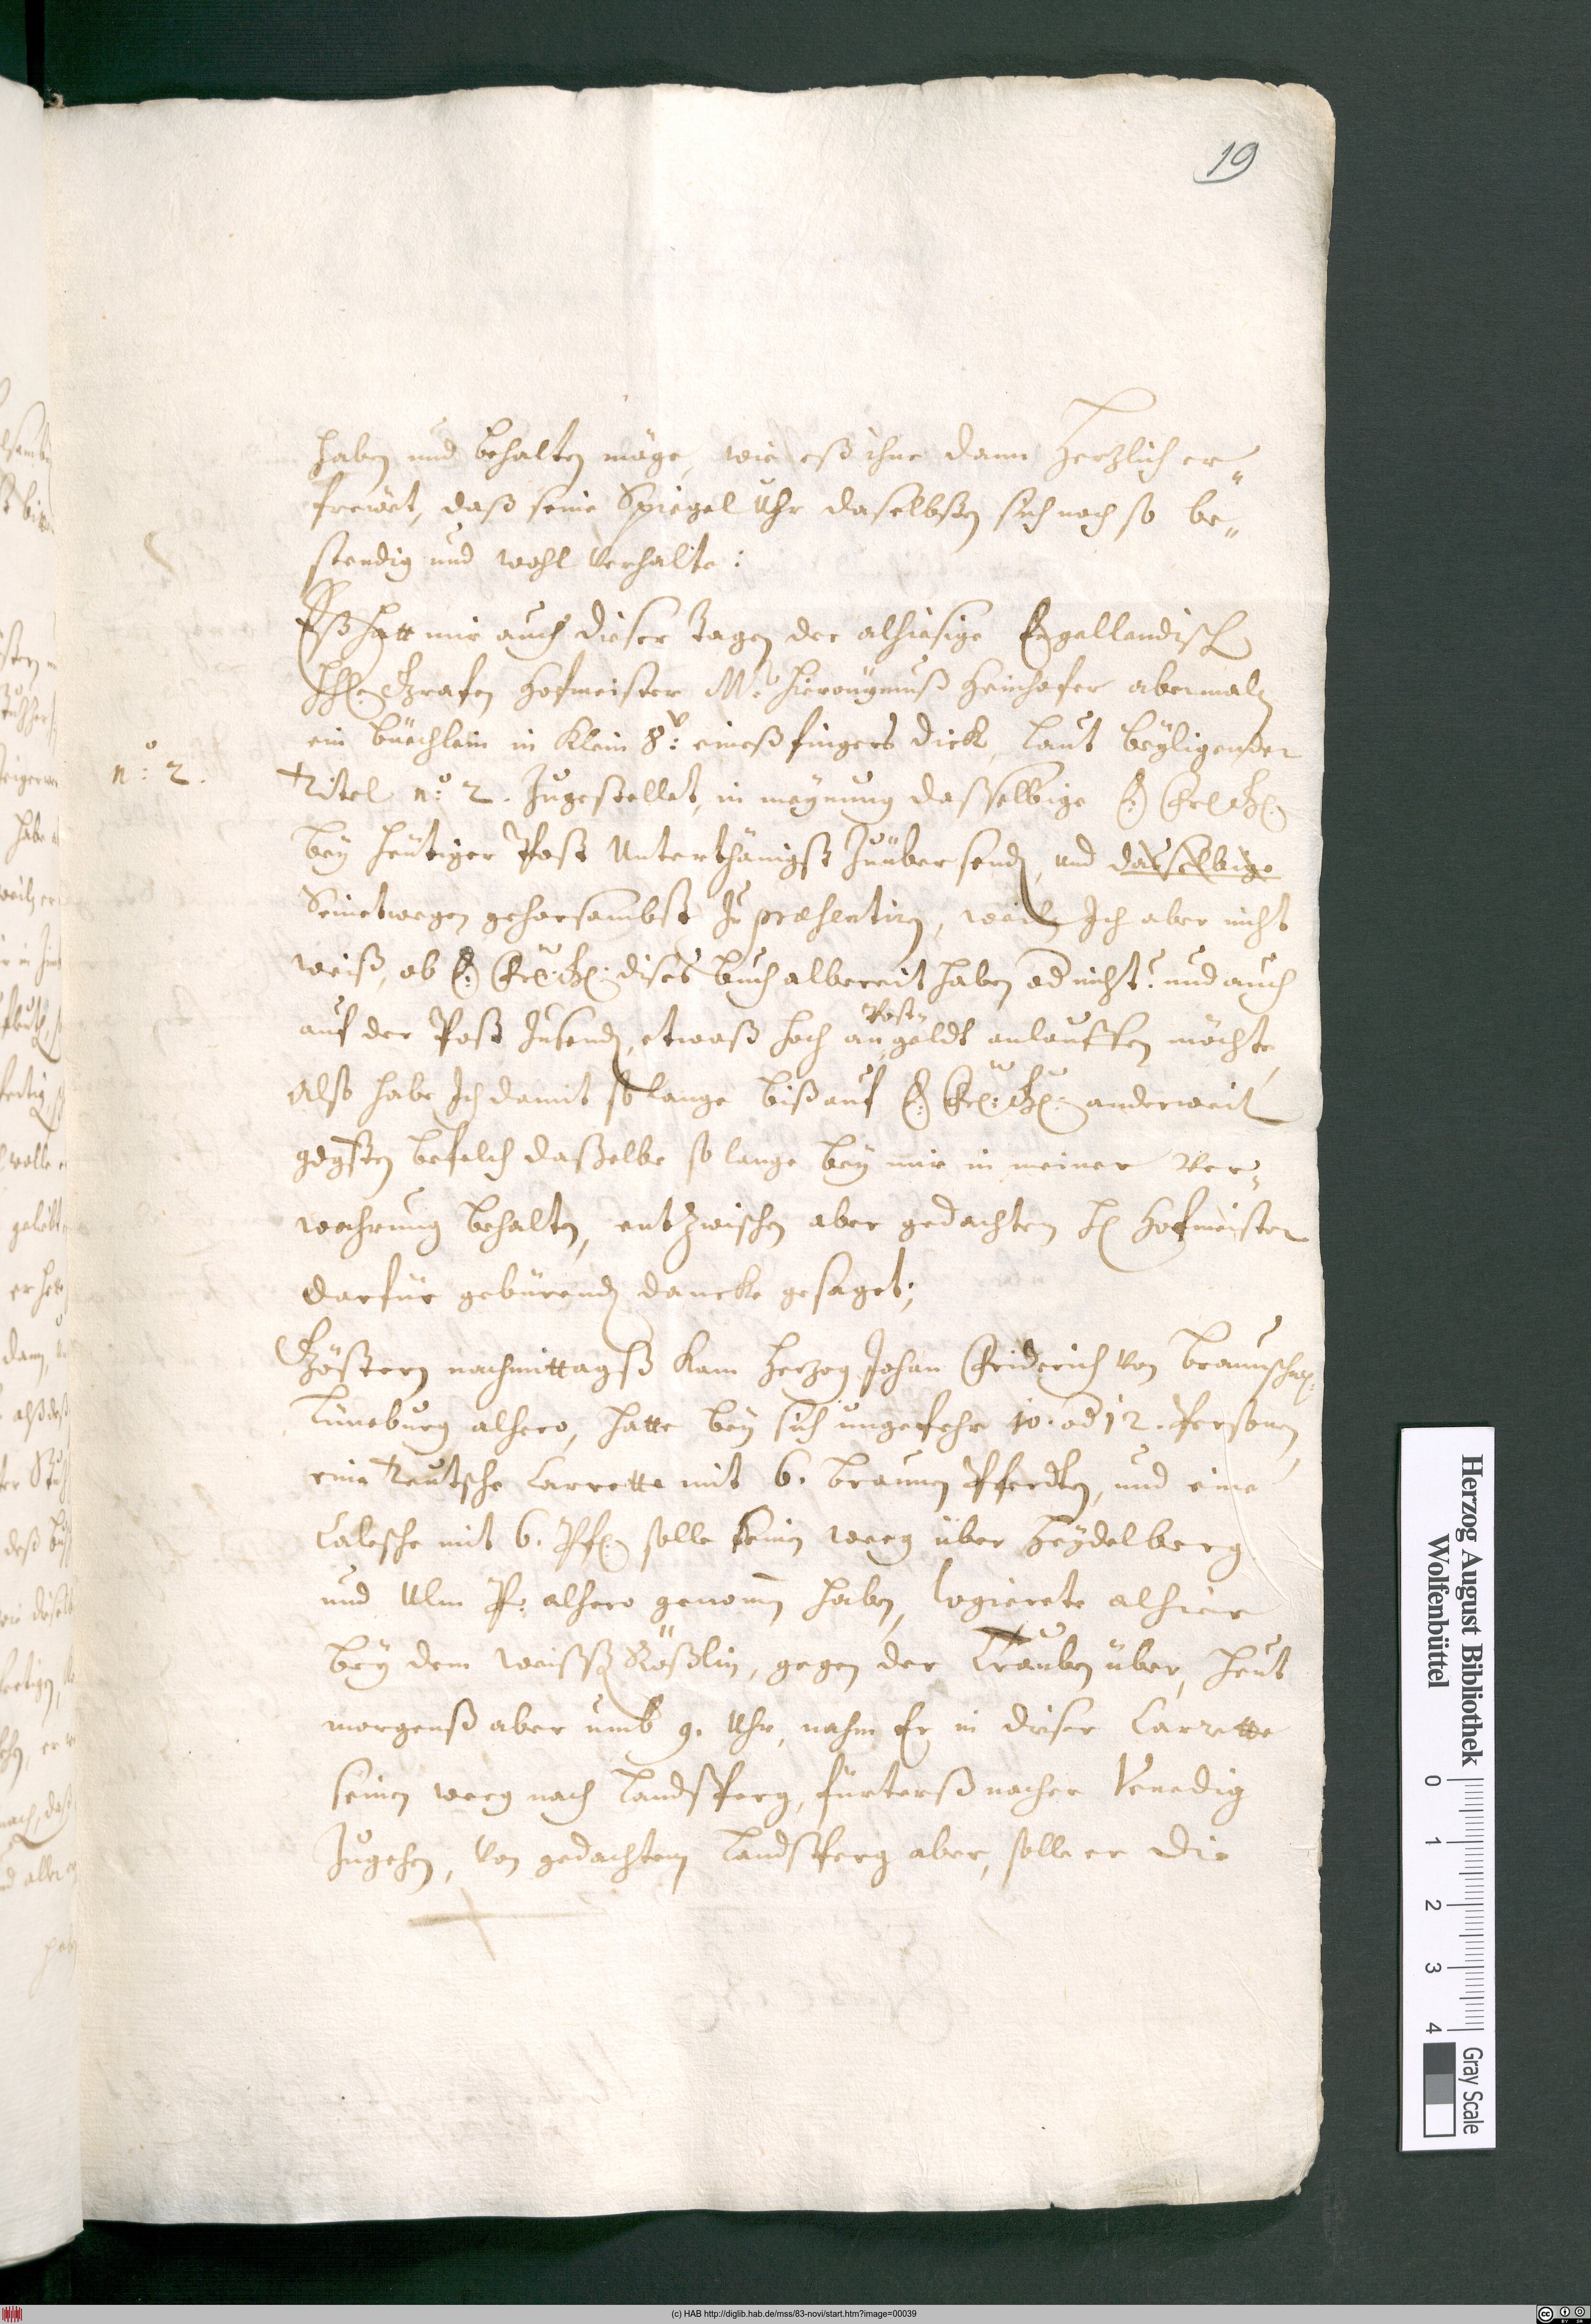 19
haben und behalten möge, wie eß ihne dann Hertzlich er„
frewet, daß seine Spiegel Uhr daselbsten sich noch so be„
stendig und wohl verhalte:
Eß hatt mir auch dieser tagen der alhiesige Engellandisch
Grafen Hofmeister Mr. Hieronÿmuß Heinhofer abermalß
ein büechlein in Klein 8v: eineß fingers dick, laut beÿligender
n:o 2.
Titel n:o 2. zugestellet, in meÿnung dasselbige E:
beÿ heütiger Post Unterthänigst zuübersend, und dasselbige
Seinetwegen gehorsambst zu præsentirn, weiln Ich aber nicht
weiß, ob E: dises buch albereit haben od nicht? und auch
auf der Post zusend, etwaß hoch an Post„
geldt anlauffen möchte,
Also habe Ich damit so lange biß auf E: anderweit
gdgsten befelch daßelbe so lange beÿ mir in meiner Ver„
wahrung behalten, entzwischen aber gedachtem H Hofmeister
darfür gebürend dancke gesaget;
Gösteren nachmittagß kam Herzog Johan Friderich von braunschw:
Lüneburg alhero, hatte beÿ sich ungefehr 10. od 12. Personen,
eine Teutsche Carrette mit 6. braunen Pferdten, und eine
Calesche mit 6. Pf. solle seinen weeg über Heÿdelberg
und Ulm p: alhero genomm haben, logierete alhier
beÿ dem weissen Rößlin, gegen der Trauben über, heut
morgenß aber umb 9. Uhr, nahm Er in diser Carrette
seinen weeg nach Landsperg, fürterß nacher Venedig
zugehen, von gedachtem Landsperg aber, solle er die
Herzog August Bibliothek
Wolfenbüttel
0 1 2 3 4
Gray Scale
(c) HAB http://diglib.hab.de/mss/83-novi/start.htm?image=00039